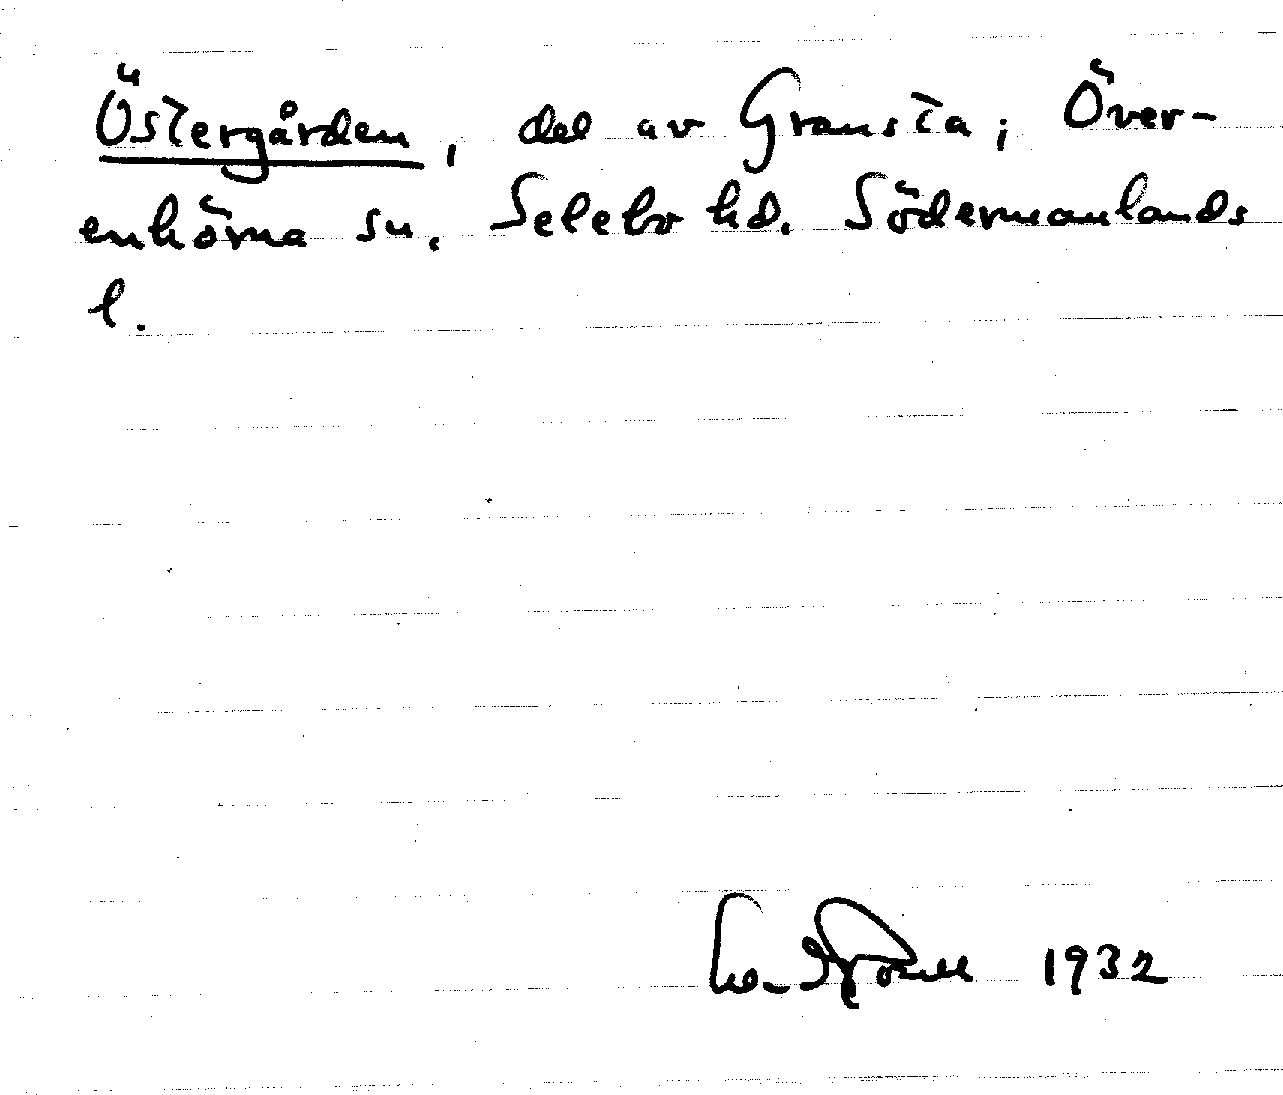 Östergården, del av Gransta i Över-
enhörna sn. Selebo hd. Södermanlands
l.
1932